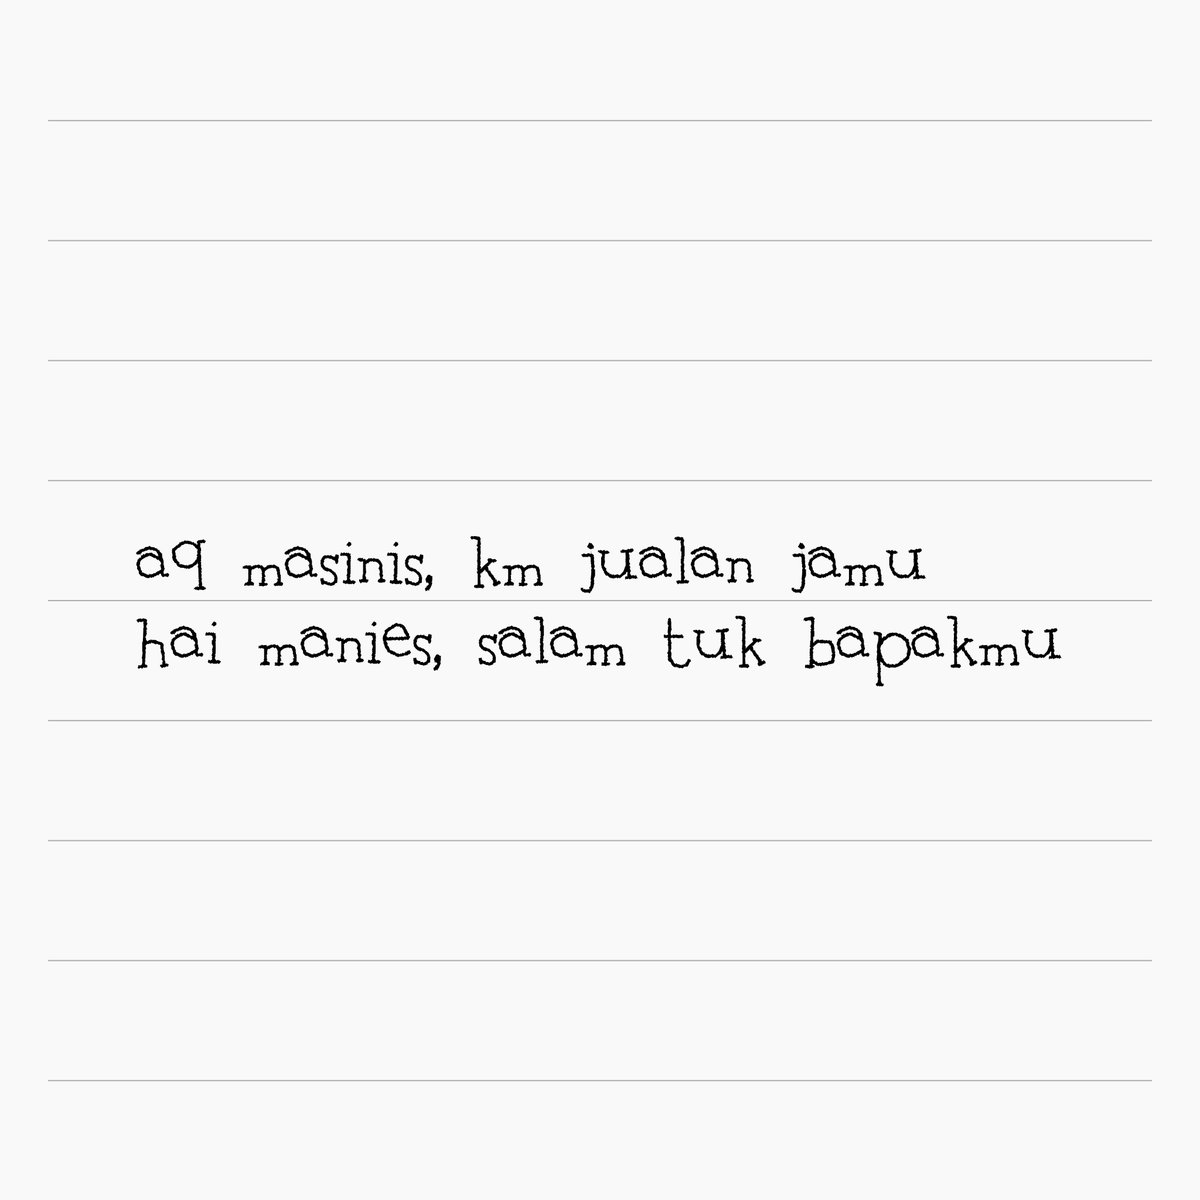 aq masinis, km jualan jamu
hai manies, salam tuk bapakmu